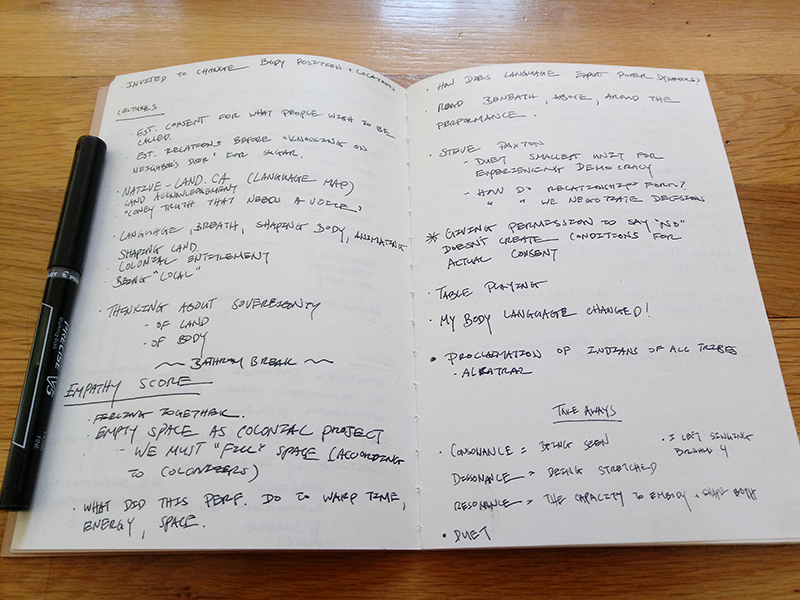 · INVITED TO CHANGE BODY POSITIONS + LOCATIONS
LECTURES
· EST. CONSENT FOR WHAT PEOPLE WISH TO BE
CALLED.
· EST. RELATIONS BEFORE "KNOCKING ON
NEIGHBOR'S DOOR" FOR SUGAR.
· NATIVE-LAND.CA (LANGUAGE MAP)
LAND ACKNOWLEDGEMENT
"LONELY TRUTH THAT NEEDS A VOICE"
· LANGUAGE, BREATH, SHAPING BODY, ANIMATING
SHAPING LAND.
· COLONIAL ENTITLEMENT
· BEING "LOCAL"
· THINKING ABOUT SOVEREIGNTY
- OF LAND
- OF BODY
~ BATHROOM BREAK ~
EMPATHY SCORE
· FEELING TOGETHER.
· EMPTY SPACE AS COLONIAL PROJECT
- WE MUST "FILL" SPACE (ACCORDING
TO COLONIZERS)
· WHAT DID THIS PERF. DO TO WARP TIME,
ENERGY, SPACE.
· HOW DOES LANGUAGE EXPORT POWER DYNAMICS?
· READ BENEATH, ABOVE, AROUND THE
PERFORMANCE.
· STEVE PAXTON
- DUET SMALLEST UNIT FOR
EXPERIENCING DEMOCRACY
- HOW DO RELATIONSHIPS FORM?
" " WE NEGOTIATE DECISION
* GIVING PERMISSION TO SAY "NO"
DOESN'T CREATE CONDITIONS FOR
ACTUAL CONSENT
· TABLE PLAYING
· MY BODY LANGUAGE CHANGED!
· PROCLAMATION OF INDIANS OF ALL TRIBES
- ALKATRAZ
TAKE AWAYS
· CONSONANCE = BEING SEEN
DISSONANCE = BEING STRETCHED
RESONANCE = THE CAPACITY TO EMBODY + SHAPE BOTH
· DUET
· I LEFT SINGING
PRECISE V5